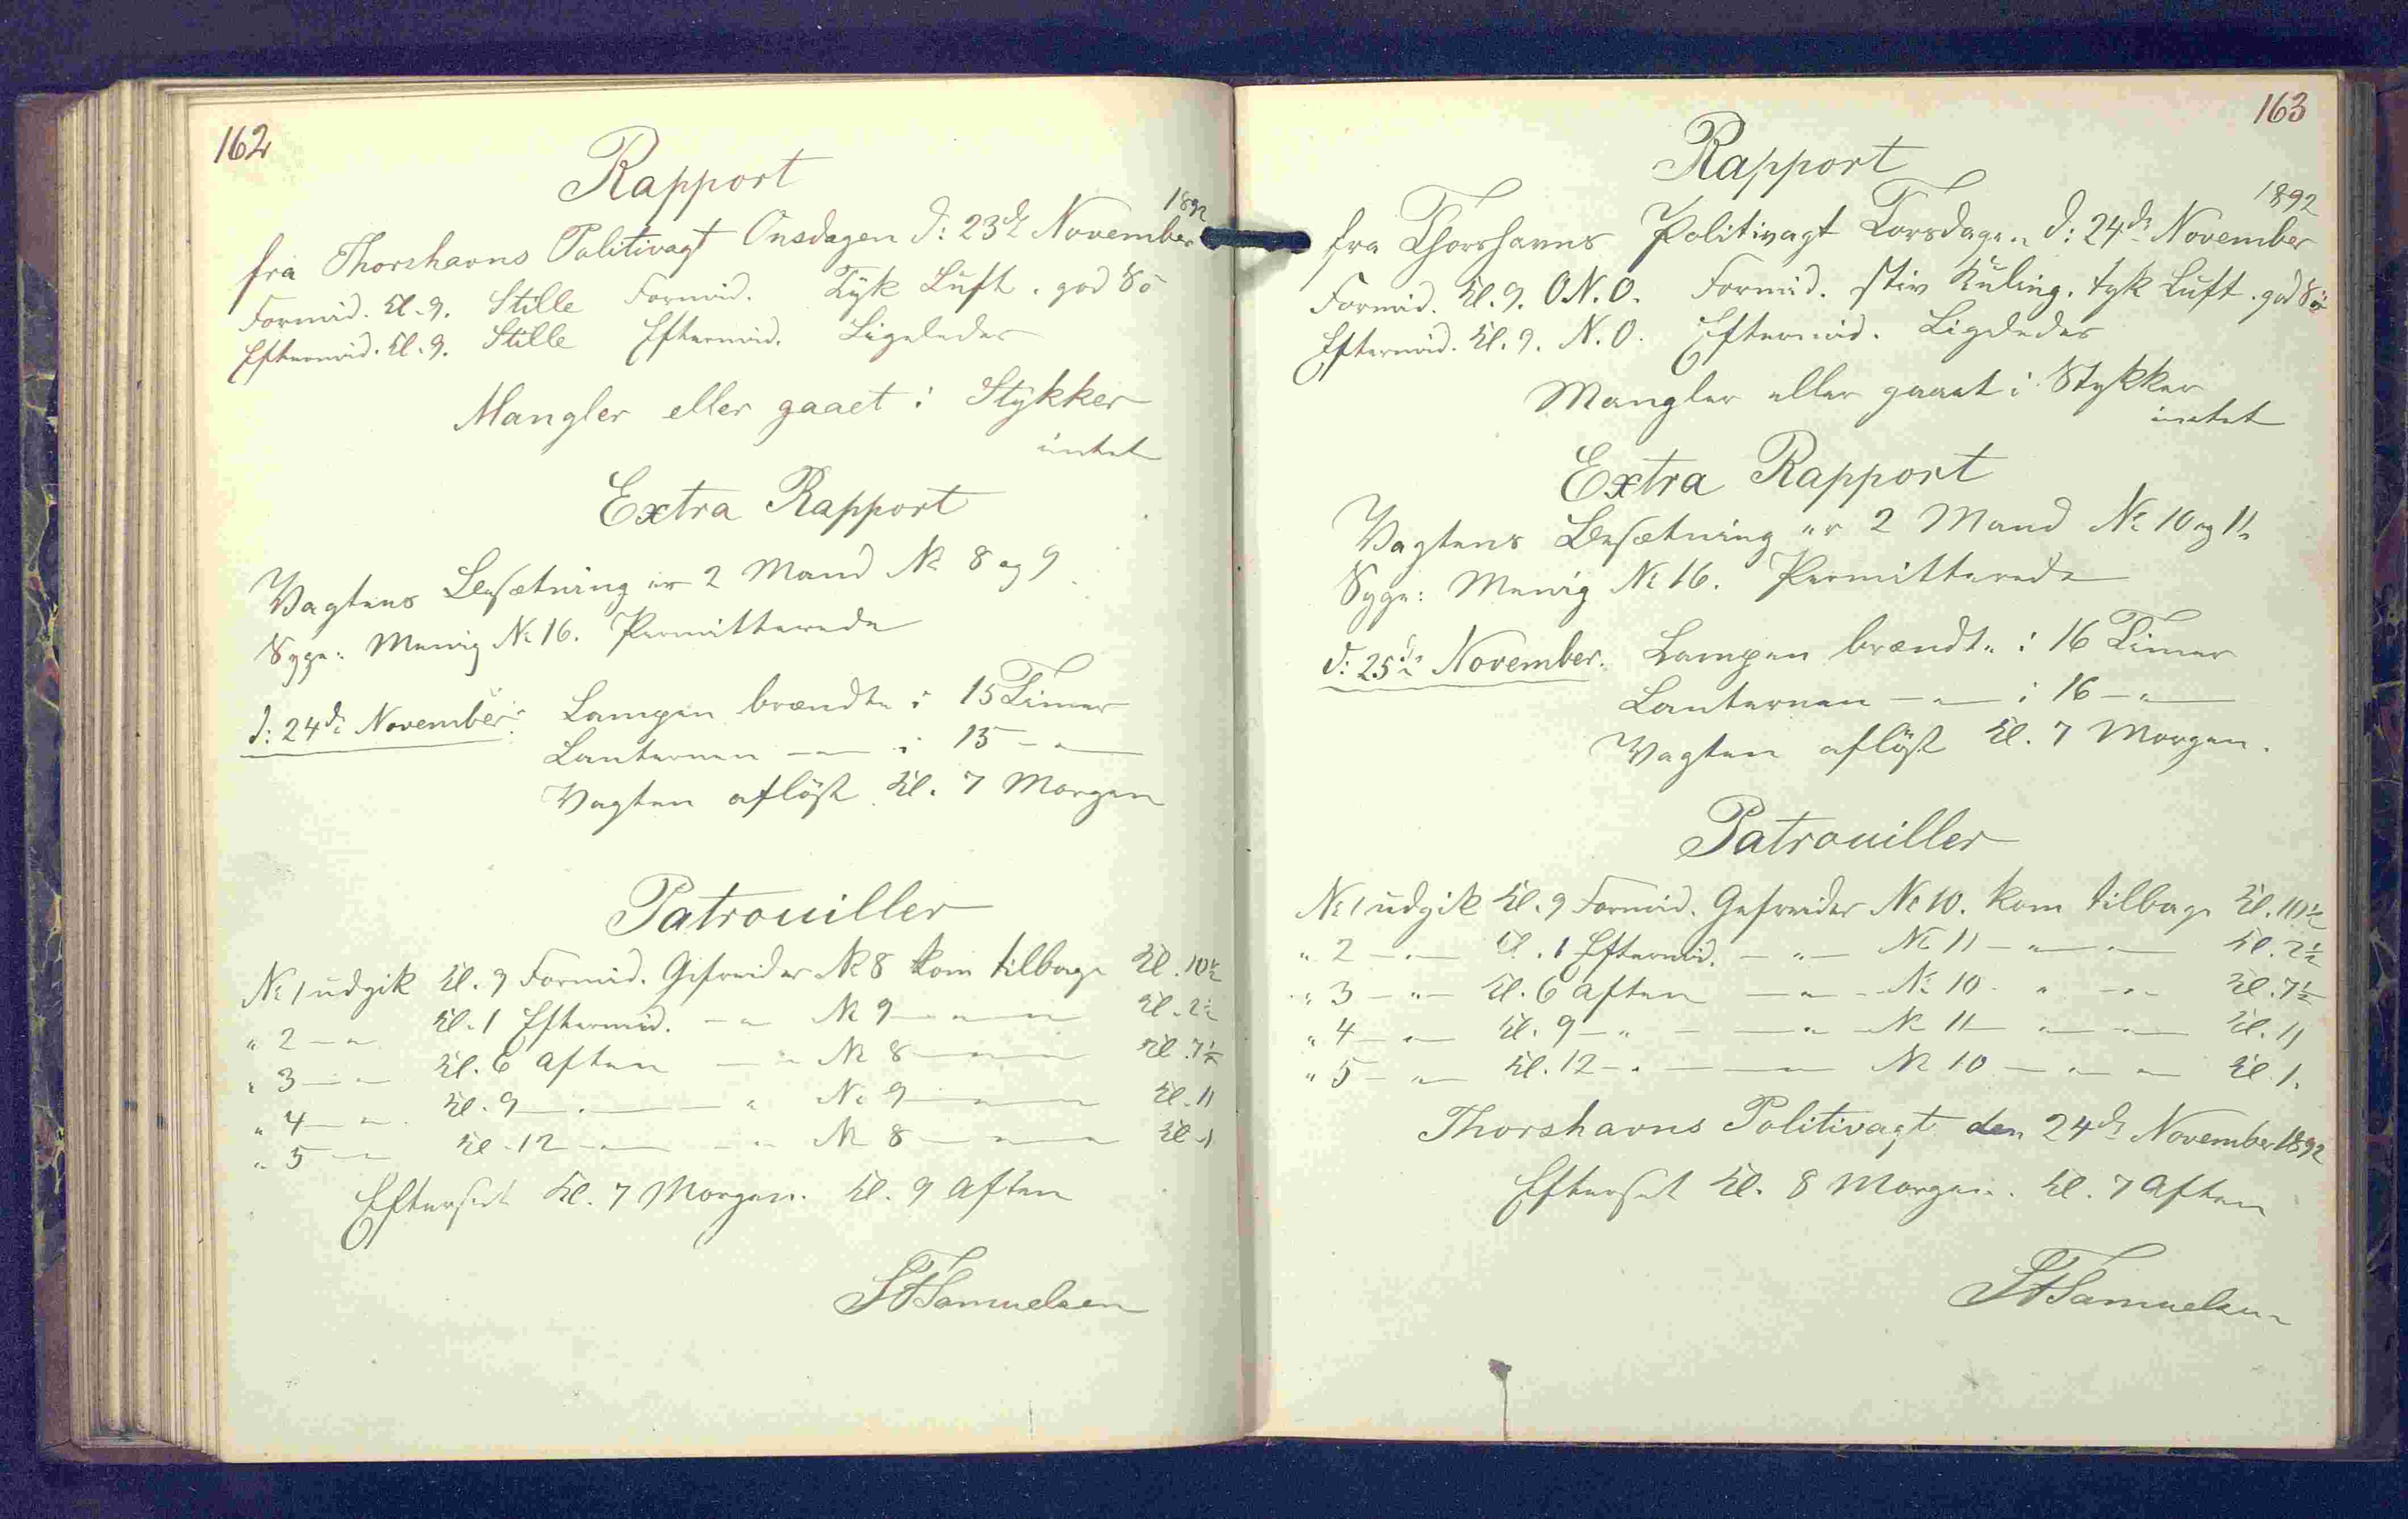 162
Rapport
1892
fra Thorshavns Politivagt Onsdagen d: 23de November
Formid. Kl. 9. Stille Formid. Tyk Luft. god Sö
Eftermid. Kl. 9. Stille Eftermid. Ligeledes
Mangler eller gaaet i Stykker
intet
Extra Rapport
Vagtens Besætning er 2 Mand No 8 og 9
Syge: Menig No 16. Permitterede
d: 24de November. Lampen brændte i 15 Timer
Lanternen — " — i 15 — " —
Vagten aflöst Kl. 7 Morgen
Patrouiller
No 1 udgik Kl. 9 Formid. Gefreider No 8 kom tilbage Kl. 10½
" 2 — " — Kl. 1 Eftermid. — " — No 9 — " — " — Kl. 2½
" 3 — " — Kl. 6 Aften — " — No 8 — " — " — Kl. 7½
" 4 — " — Kl. 9 — " — — " — No 9 — " — " — Kl. 11
" 5 — " — Kl. 12 — " — — " — No 8 — " — " — Kl. 1
Efterset Kl. 7 Morgen. Kl. 9 Aften
Samuelsen
163
Rapport
1892
fra Thorshavns Politivagt Torsdagen d: 24de November
Formid. Kl. 9. O.N.O. Formid. stiv Kuling. tyk Luft. god Sö
Eftermid. Kl. 9. N.O. Eftermid. Ligeledes
Mangler eller gaaet i Stykker
intet
Extra Rapport
Vagtens Besætning er 2 Mand No 10 og 11
Syge: Menig No 16. Permitterede
d: 25de November. Lampen brændte i 16 Timer
Lanternen — " — i 16 — " —
Vagten aflöst Kl. 7 Morgen.
Patrouiller
No 1 udgik Kl. 9 Formid. Gefreider No 10. kom tilbage Kl. 10½
" 2 — " — Kl. 1 Eftermid. — " — No 11 — " — " — Kl. 2½
" 3 — " — Kl. 6 Aften — " — No 10 — " — " — Kl. 7½
" 4 — " — Kl. 9 — " — — " — No 11 — " — " — Kl. 11
" 5 — " — Kl. 12 — " — — " — No 10 — " — " — Kl. 1.
Thorshavns Politivagt den 24de November 1892
Efterset Kl. 8 Morgen. Kl. 7 Aften
Samuelsen